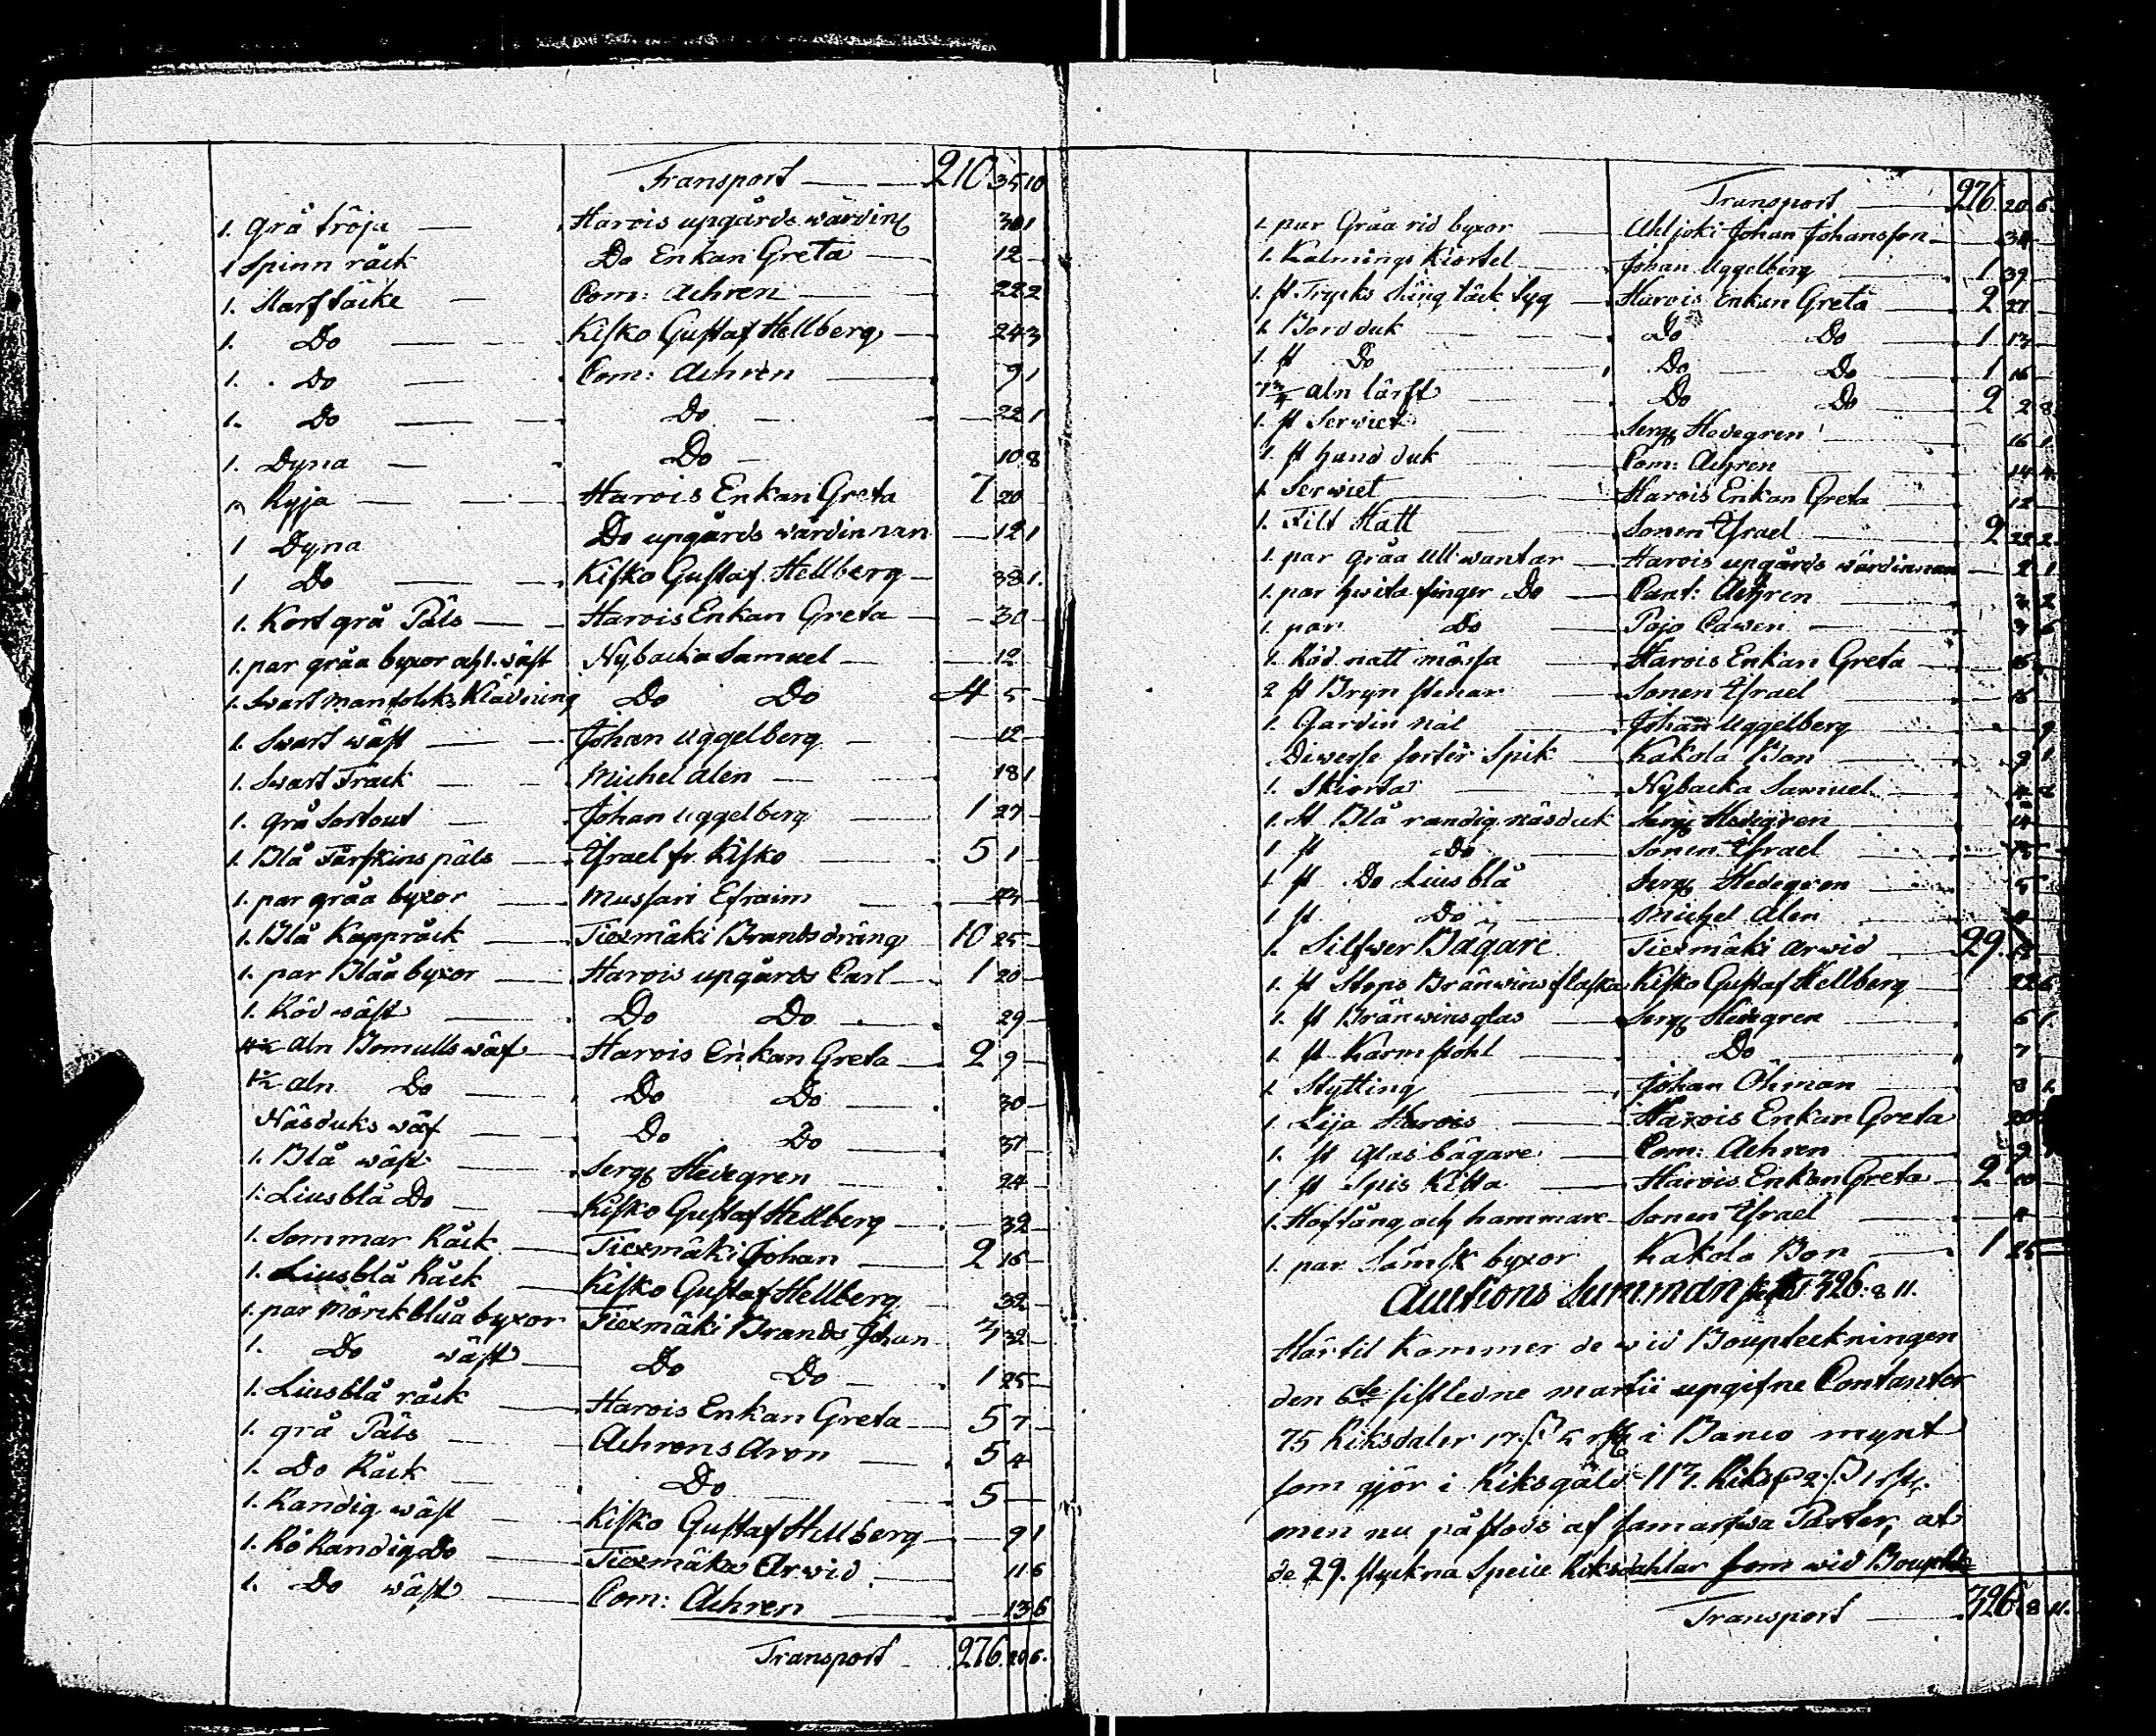 Transport 210 35 10
1. Grå tröja Harois upgårds wärdin 30 1
1 Spinn råck Do Enkan Greta 12
1. Skarf täcke Com: Achren 22 2
1. Do Kisko Gustaf Hellberg 24 3
1. Do Com: Achren 9 1
1. Do Do 22 1
1. Dyna Do 10 8
Ryja Harois Enkan Greta 7 20
1 Dyna Do upgårds wärdinnan 12 1
1 Do Kisko Gustaf Hellberg 38 1.
1. Kort grå Päls Harois Enkan Greta 30
1. par gråa byxor och 1. wäst Nybacka Samuel 12
1. Swart manfolks Klädning Do Do 4 5
1. Swart wäst Johan Uggelberg 12
1. Swart Frack Michel Alen 18 1
1. grå Sortout Johan Uggelberg 1 27
1. Blå Fårskins päls Israel fr. Kisko 5 1
1. par gråa byxor Mussari Efraim
1. Blå Kappråck Tiexmäki Brandsdräng 10 25
1. par Blåa byxor Harois upgårds Carl 1 20
1. Röd wäst Do Do 29
aln Bomulls wäf Harois Enkan Greta 2 9
1½ aln Do Do Do 30
Näsduks wäf Do Do 37
1. Blå wäst Serg Hedegren 24
1. Liusblå Do Kisko Gustaf Hellberg 32
1. Sommar Råck Tiexmäki Johan 2 16
1. Liusblå Råck Kisko Gustaf Hellberg 32
1. par Mörckblåa byxor Tiexmäki Brands Johan 3 32
1. Do wäst Do Do 1 25
1. Liusblå råck Harois Enkan Greta 5 7
1. grå Päls Achrens Aron 5 4
1. Do Råck Do 5
1. Randig wäst Kisko Gustaf Hellberg 9 1
1. Rö Randig Do Tiexmäki Arwid 11 6
1. Do wäst Com: Achren 13 6
Transport 276 20 6.
Transport 276 20 6.
1 par Gråa rid byxor Ahljoki Johan Johansson 34
1. Kalmings Kiortel Johan Uggelberg 1 39
1. st Trycks säng täck Tyg Harois Enkan Greta 2 27
1. Bordduk Do Do 1 13
1. st Do Do Do 1 16
7¾ aln lärft Do Do 2 2 8
1. st Serwiet Serg Hedegren 16 1
1. st hand duk Com: Achren 14 4
1. Serwiet Harois Enkan Greta 12
1. Filt Hatt Sonen Israel 2 22 2
1. par gråa Ull wantar Harois upgårds wärdinnan 2 1
1. par hwita finger Do Cant: Achren 3 2
1. par Do Pojo Cawen 3 6
1. Röd natt mössa Harois Enkan Greta 6
2 st Bryn stenar Sonen Israel 16
1. Gardin nål Johan Uggelberg 9
Diwerse sorter Spik Kakola Bon 9 1
1. Skiorta Nybacka Samuel
1. st Blå randig näsduk Serg Hedegren 14
1 st Do Sonen Israel 15
1 st Do Liusblå Serg Hedegren 5
1 st Do Michel Alen
1. Silfwer Bägare Tiexmäki Arwid 29.
1. st Stops Bränwins flaska Kisko Gustaf Hellberg 22 6
1. st Bränwinsglas Serg Hedegren 6 1
1. st Karmstohl Do 7
1. Stytting Johan Öhman 8 1.
1. Lija Harois Harois Enkan Greta 20
1. st Glas bägare Com: Achren 9
1 st Spis Kitta Harois Enkan Greta 2 10
1. Hoftång och hammare Sonen Israel
1. par Sämsk byxor Kakola Bon 1 25
Auctions Summan 326: 8 11.
Härtil Kommer de wid Boupteckningen
den 6te sistledne Martii upgifne Contanter
75 Riksdaler 17 ß 5 rst i Banco mynt
som gjör i Riksgäld 113. Riksd 2 ß 1 rst.
men nu påstods af samartwa Parter, at
de 29. stycknа Specie Riksdahlar som wid Boupteck
Transport 326 8 11.